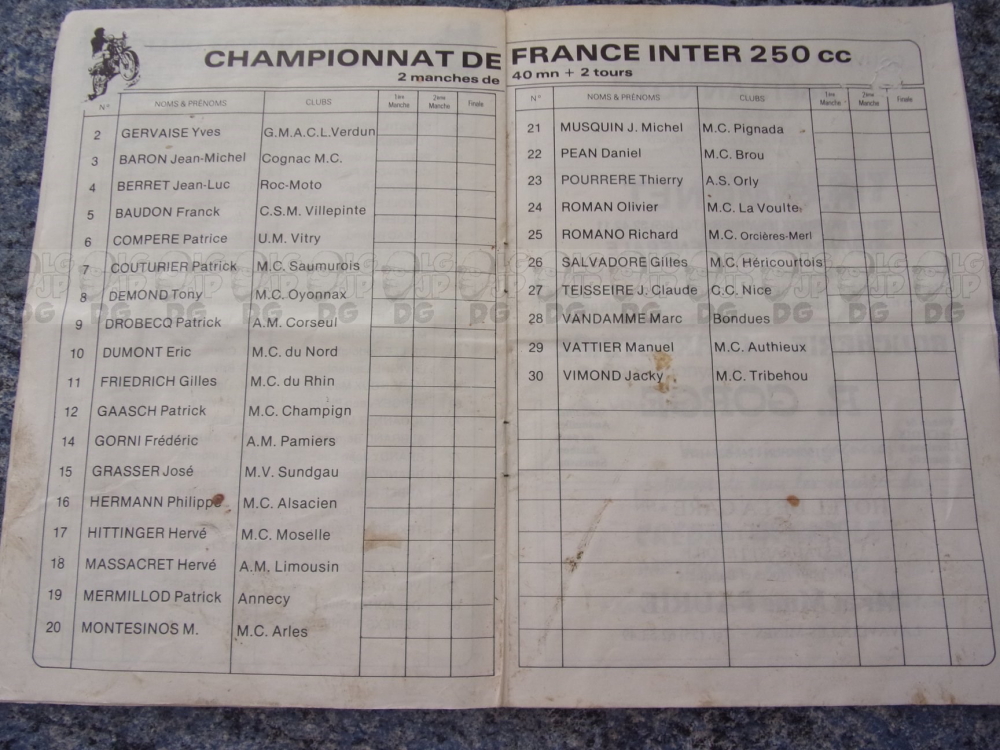 CHAMPIONNAT DE FRANCE INTER 250 cc
2 manches de 40 mn + 2 tours
N° NOMS & PRÉNOMS CLUBS 1ère Manche 2ème Manche Finale
2 GERVAISE Yves G.M.A.C.L.Verdun
3 BARON Jean-Michel Cognac M.C.
4 BERRET Jean-Luc Roc-Moto
5 BAUDON Franck C.S.M. Villepinte
6 COMPERE Patrice U.M. Vitry
7 COUTURIER Patrick M.C. Saumurois
8 DEMOND Tony M.C. Oyonnax
9 DROBECQ Patrick A.M. Corseul
10 DUMONT Eric M.C. du Nord
11 FRIEDRICH Gilles M.C. du Rhin
12 GAASCH Patrick M.C. Champign
14 GORNI Frédéric A.M. Pamiers
15 GRASSER José M.V. Sundgau
16 HERMANN Philippe M.C. Alsacien
17 HITTINGER Hervé M.C. Moselle
18 MASSACRET Hervé A.M. Limousin
19 MERMILLOD Patrick Annecy
20 MONTESINOS M. M.C. Arles
N° NOMS & PRÉNOMS CLUBS 1ère Manche 2ème Manche Finale
21 MUSQUIN J. Michel M.C. Pignada
22 PEAN Daniel M.C. Brou
23 POURRERE Thierry A.S. Orly
24 ROMAN Olivier M.C. La Voulte
25 ROMANO Richard M.C. Orcières-Merl
26 SALVADORE Gilles M.C. Héricourtois
27 TEISSEIRE J. Claude C.C. Nice
28 VANDAMME Marc Bondues
29 VATTIER Manuel M.C. Authieux
30 VIMOND Jacky M.C. Tribehou